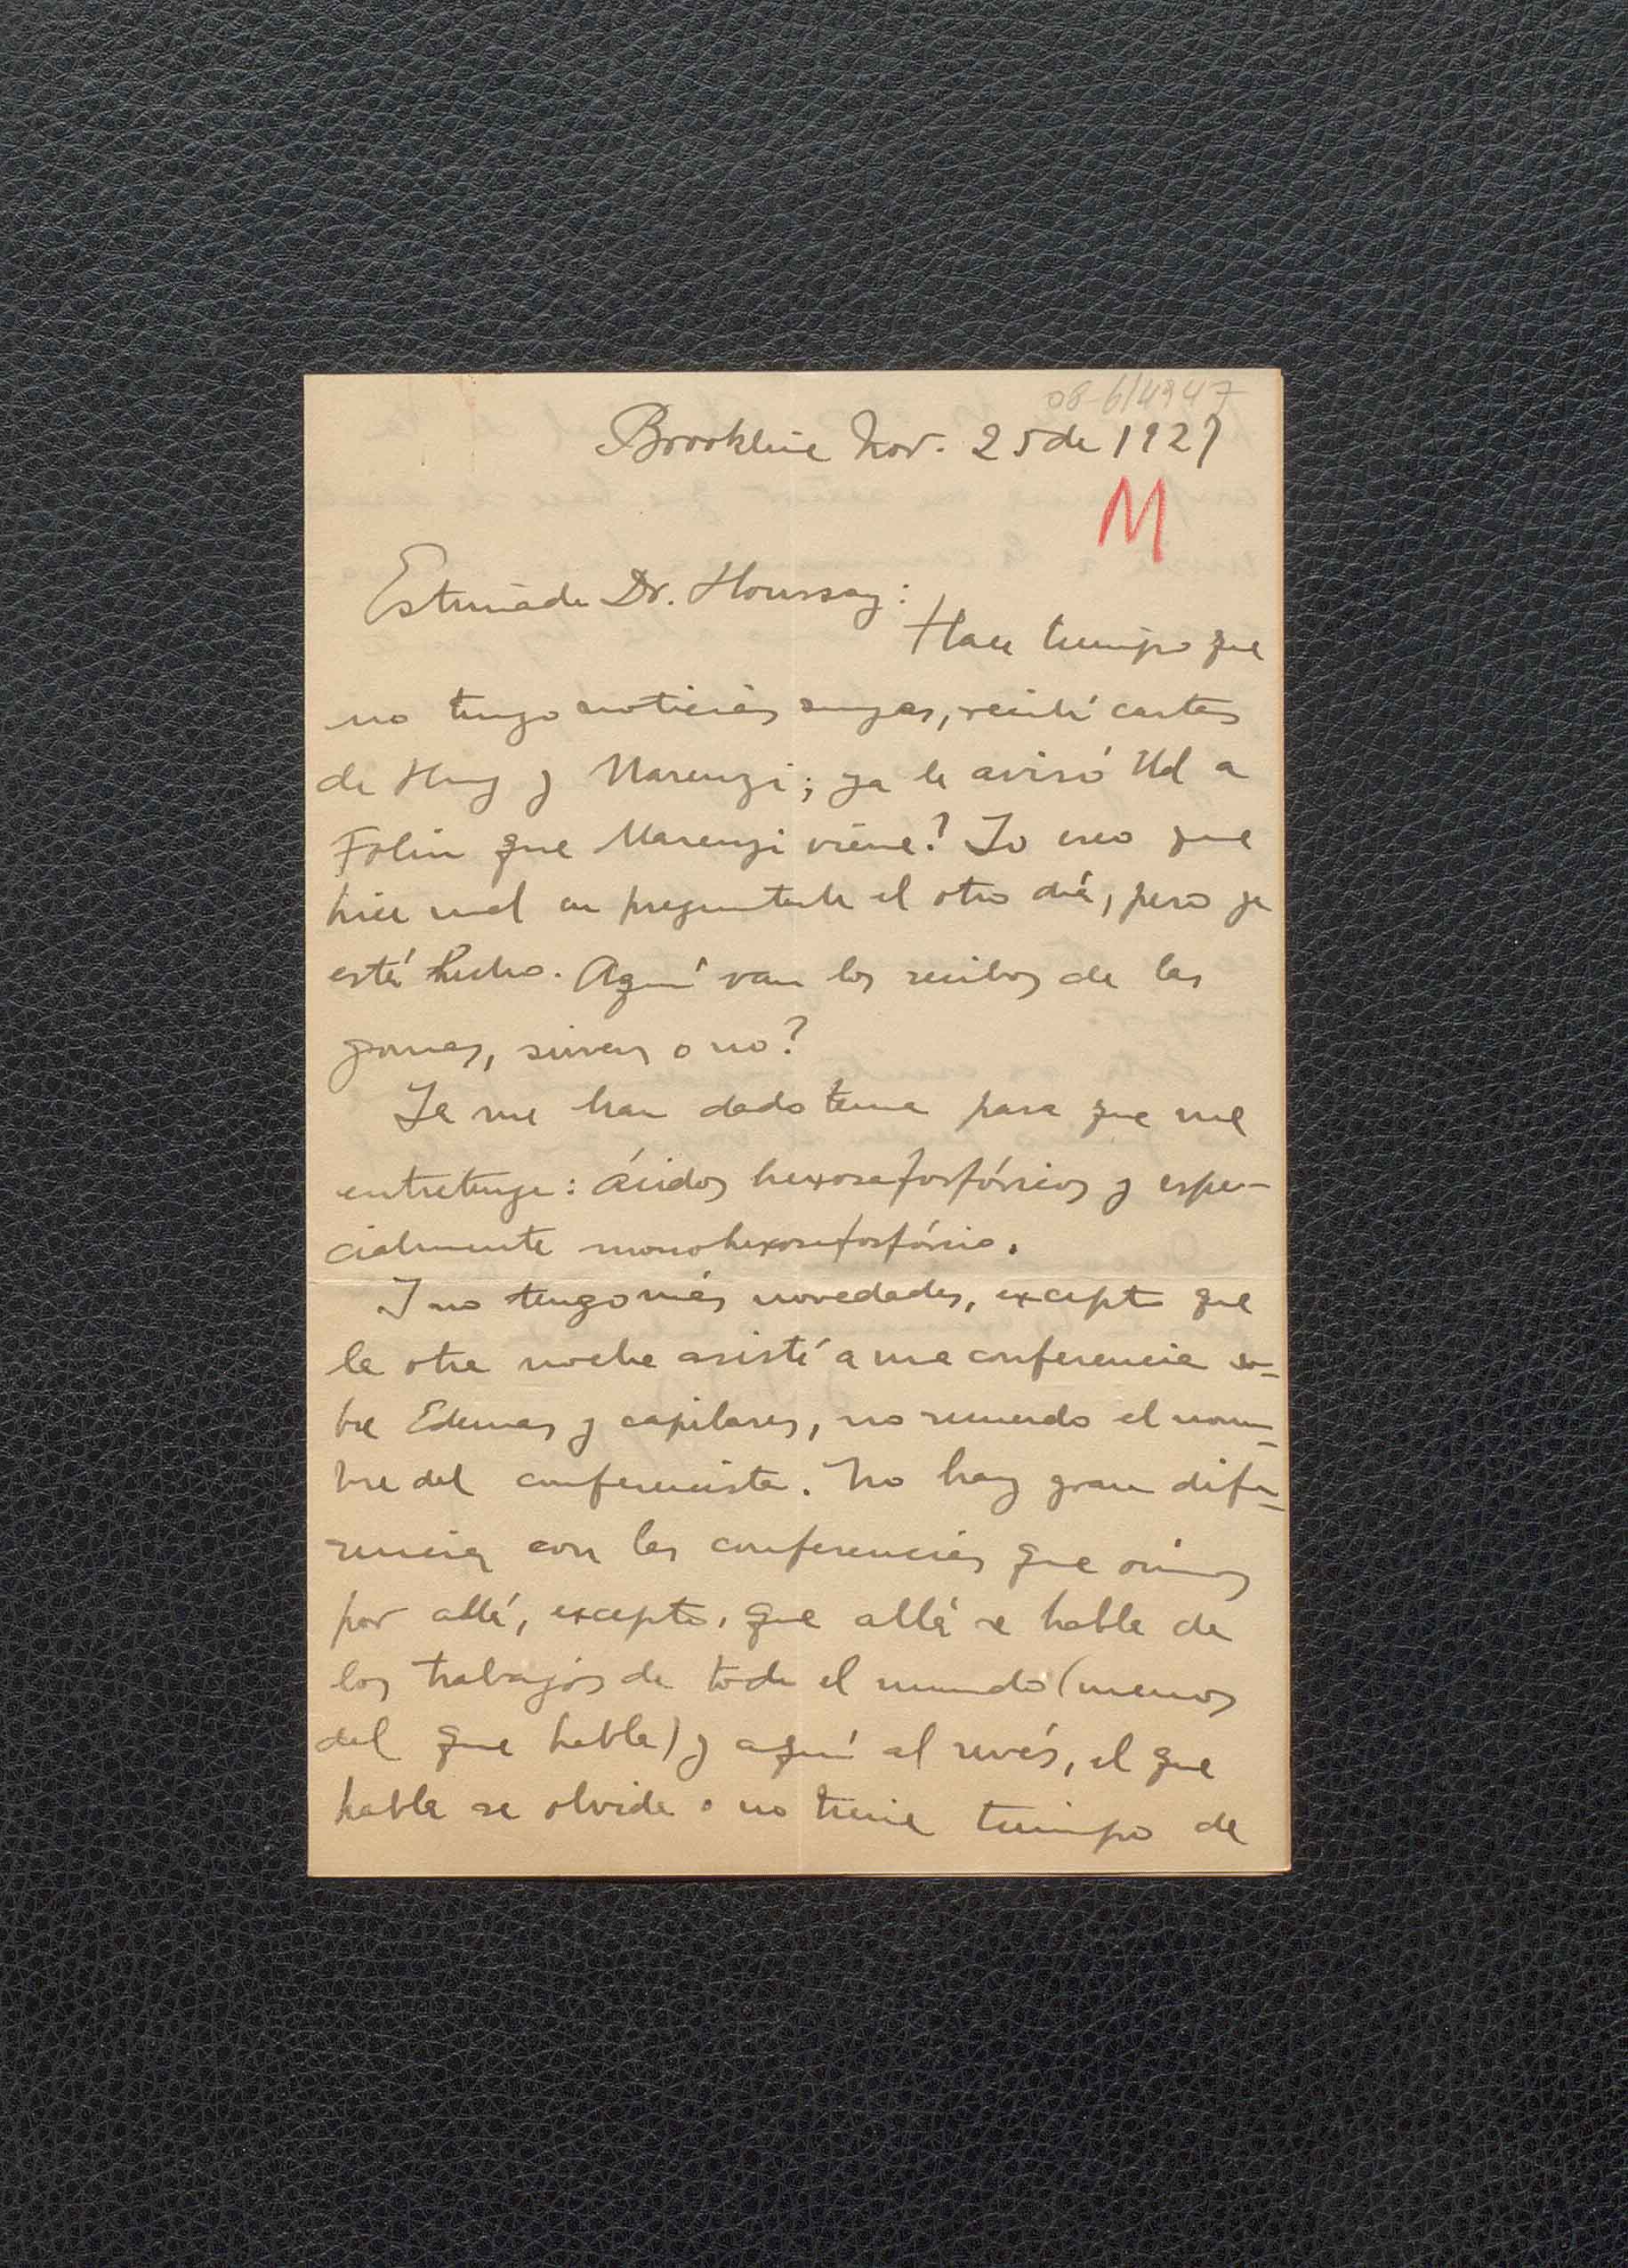 08-6/4947
Brookline Nov. 25 de 1927
M
Estimado Dr. Houssay:
Hace tiempo que
no tengo noticias suyas, recibí cartas
de Hug y Marenzi; ya le avisó Ud a
Folin que Marenzi viene? Yo creo que
hice mal en preguntarle el otro día, pero ya
está hecho. Aquí van los recibos de las
gomas, sirven o no?
Ya me han dado tema para que me
entretenga: Ácidos hexosafosfóricos y espe-
cialmente monohexosafosfórico.
Y no tengo más novedades, excepto que
la otra noche asistí a una conferencia so-
bre Edemas y capilares, no recuerdo el nom-
bre del conferencista. No hay gran dife-
rencia con las conferencias que oimos
por allá, excepto, que allá se habla de
los trabajos de todo el mundo (menos
del que habla) y aquí al revés, el que
habla se olvida o no tiene tiempo de